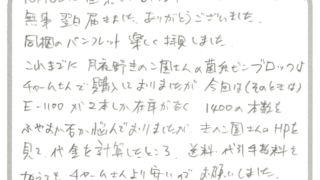 無事 翌日 届きました。ありがとうございました。
同梱のパンフレット 楽しく拝見しました。
これまでに 月夜野きのこ園さんの菌糸ビンブロックは
チャームさんで購入しておりましたが 今回は(そのときは)
E-1100が2本しか在庫がなく 1400の本数を
ふやすか否か悩んでおりましたが きのこ園さんのHPを
見て 代金を計算したところ、送料・代引手数料を
加えても チャームさんより安いので お願いしました。